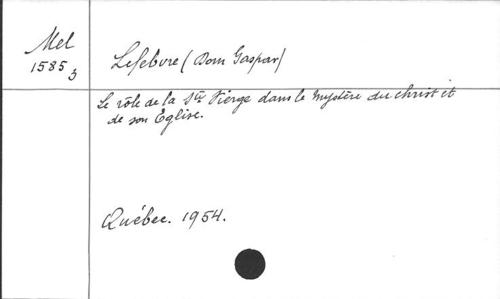 Mel
1585 3
Lefebvre (Dom Gaspar)
Le rôle de la Ste Vierge dans le mystère du Christ et
de son Église.
Québec. 1954.